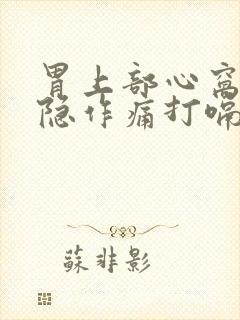 胃上部心窝
隐作痛打嗝
蘇非影